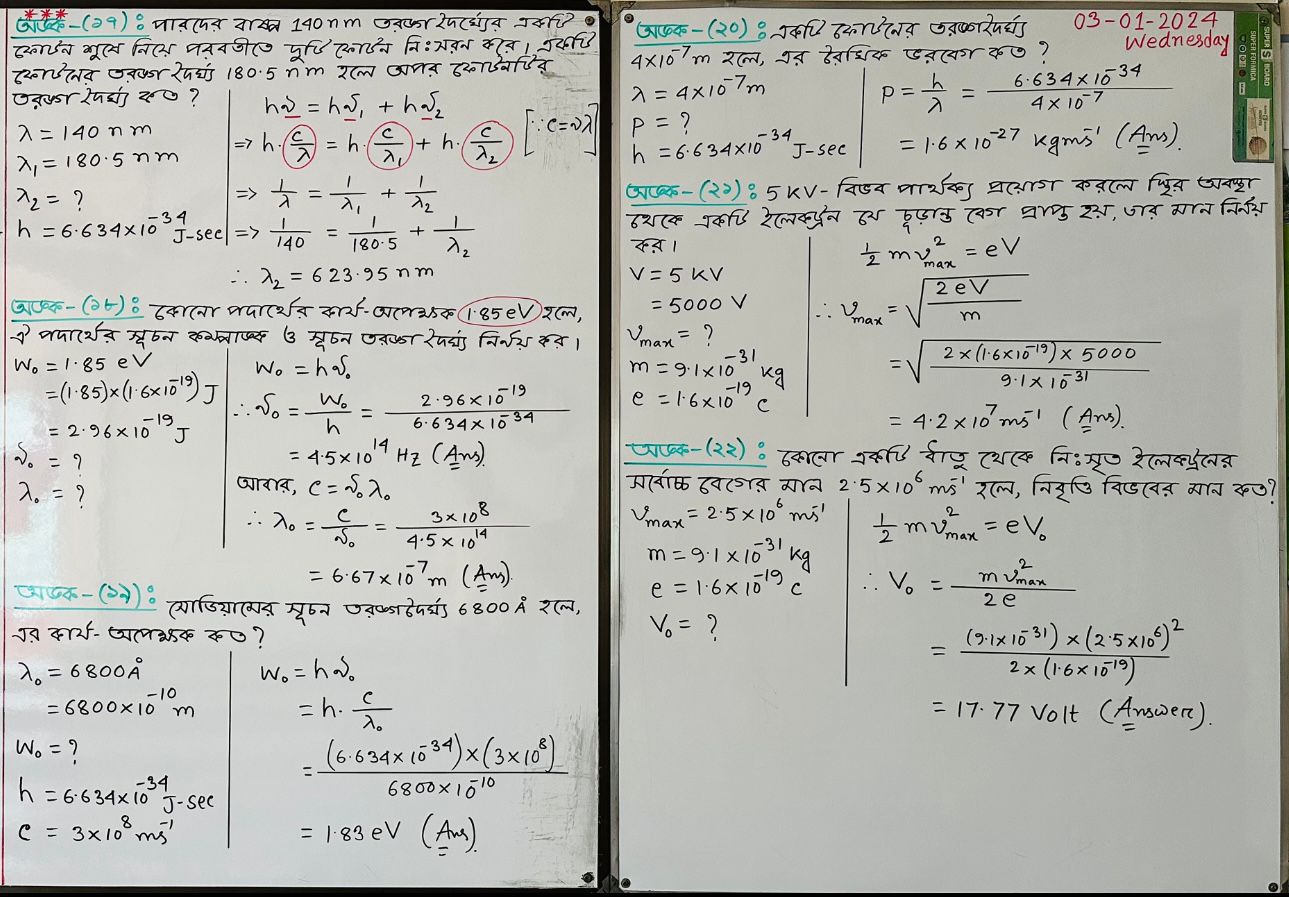 ***
অঙ্ক-(১৭): পারদের বাষ্প 140 nm তরঙ্গ দৈর্ঘ্যের একটি
ফোটন শুষে নিয়ে পরবর্তীতে দুটি ফোটন নিঃসরন করে। একটি
ফোটনের তরঙ্গ দৈর্ঘ্য 180.5 nm হলে অপর ফোটনটির
তরঙ্গ দৈর্ঘ্য কত?
λ = 140 nm
λ₁ = 180.5 nm
λ₂ = ?
h = 6.634×10⁻³⁴ J-sec
hν = hν₁ + hν₂
⇒ h·c/λ = h·c/λ₁ + h·c/λ₂ [∵ c=νλ]
⇒ 1/λ = 1/λ₁ + 1/λ₂
⇒ 1/140 = 1/180.5 + 1/λ₂
∴ λ₂ = 623.95 nm
অঙ্ক-(১৮): কোনো পদার্থের কার্য-অপেক্ষক 1.85 eV হলে,
ঐ পদার্থের সূচন কম্পাঙ্ক ও সূচন তরঙ্গ দৈর্ঘ্য নির্নয় কর।
W₀ = 1.85 eV
= (1.85)×(1.6×10⁻¹⁹) J
= 2.96×10⁻¹⁹ J
ν₀ = ?
λ₀ = ?
W₀ = hν₀
∴ ν₀ = W₀/h = 2.96×10⁻¹⁹/6.634×10⁻³⁴
= 4.5×10¹⁴ Hz (Ans).
আবার, c = ν₀λ₀
∴ λ₀ = c/ν₀ = 3×10⁸/4.5×10¹⁴
= 6.67×10⁻⁷ m (Ans).
অঙ্ক-(১৯): সোডিয়ামের সূচন তরঙ্গদৈর্ঘ্য 6800 Å হলে,
এর কার্য-অপেক্ষক কত?
λ₀ = 6800 Å
= 6800×10⁻¹⁰ m
W₀ = ?
h = 6.634×10⁻³⁴ J-sec
c = 3×10⁸ ms⁻¹
W₀ = hν₀
= h·c/λ₀
= (6.634×10⁻³⁴)×(3×10⁸)/6800×10⁻¹⁰
= 1.83 eV (Ans).
03-01-2024
Wednesday
SUPER S BOARD
SUPER FORMICA
অঙ্ক-(২০): একটি ফোটনের তরঙ্গদৈর্ঘ্য
4×10⁻⁷ m হলে, এর রৈখিক ভরবেগ কত?
λ = 4×10⁻⁷ m
P = ?
h = 6.634×10⁻³⁴ J-sec
P = h/λ = 6.634×10⁻³⁴/4×10⁻⁷
= 1.6×10⁻²⁷ kgms⁻¹ (Ans).
অঙ্ক-(২১): 5 KV-বিভব পার্থক্য প্রয়োগ করলে স্থির অবস্থা
থেকে একটি ইলেকট্রন যে চূড়ান্ত বেগ প্রাপ্ত হয়, তার মান নির্নয়
কর।
V = 5 KV
= 5000 V
v_max = ?
m = 9.1×10⁻³¹ kg
e = 1.6×10⁻¹⁹ c
½ mv²_max = eV
∴ v_max = √(2eV/m)
= √(2×(1.6×10⁻¹⁹)×5000/9.1×10⁻³¹)
= 4.2×10⁷ ms⁻¹ (Ans).
অঙ্ক-(২২): কোনো একটি ধাতু থেকে নিঃসৃত ইলেকট্রনের
সর্বোচ্চ বেগের মান 2.5×10⁶ ms⁻¹ হলে, নিবৃত্তি বিভবের মান কত?
v_max = 2.5×10⁶ ms⁻¹
m = 9.1×10⁻³¹ kg
e = 1.6×10⁻¹⁹ c
V₀ = ?
½ mv²_max = eV₀
∴ V₀ = mv²_max/2e
= (9.1×10⁻³¹)×(2.5×10⁶)²/2×(1.6×10⁻¹⁹)
= 17.77 Volt (Answer).